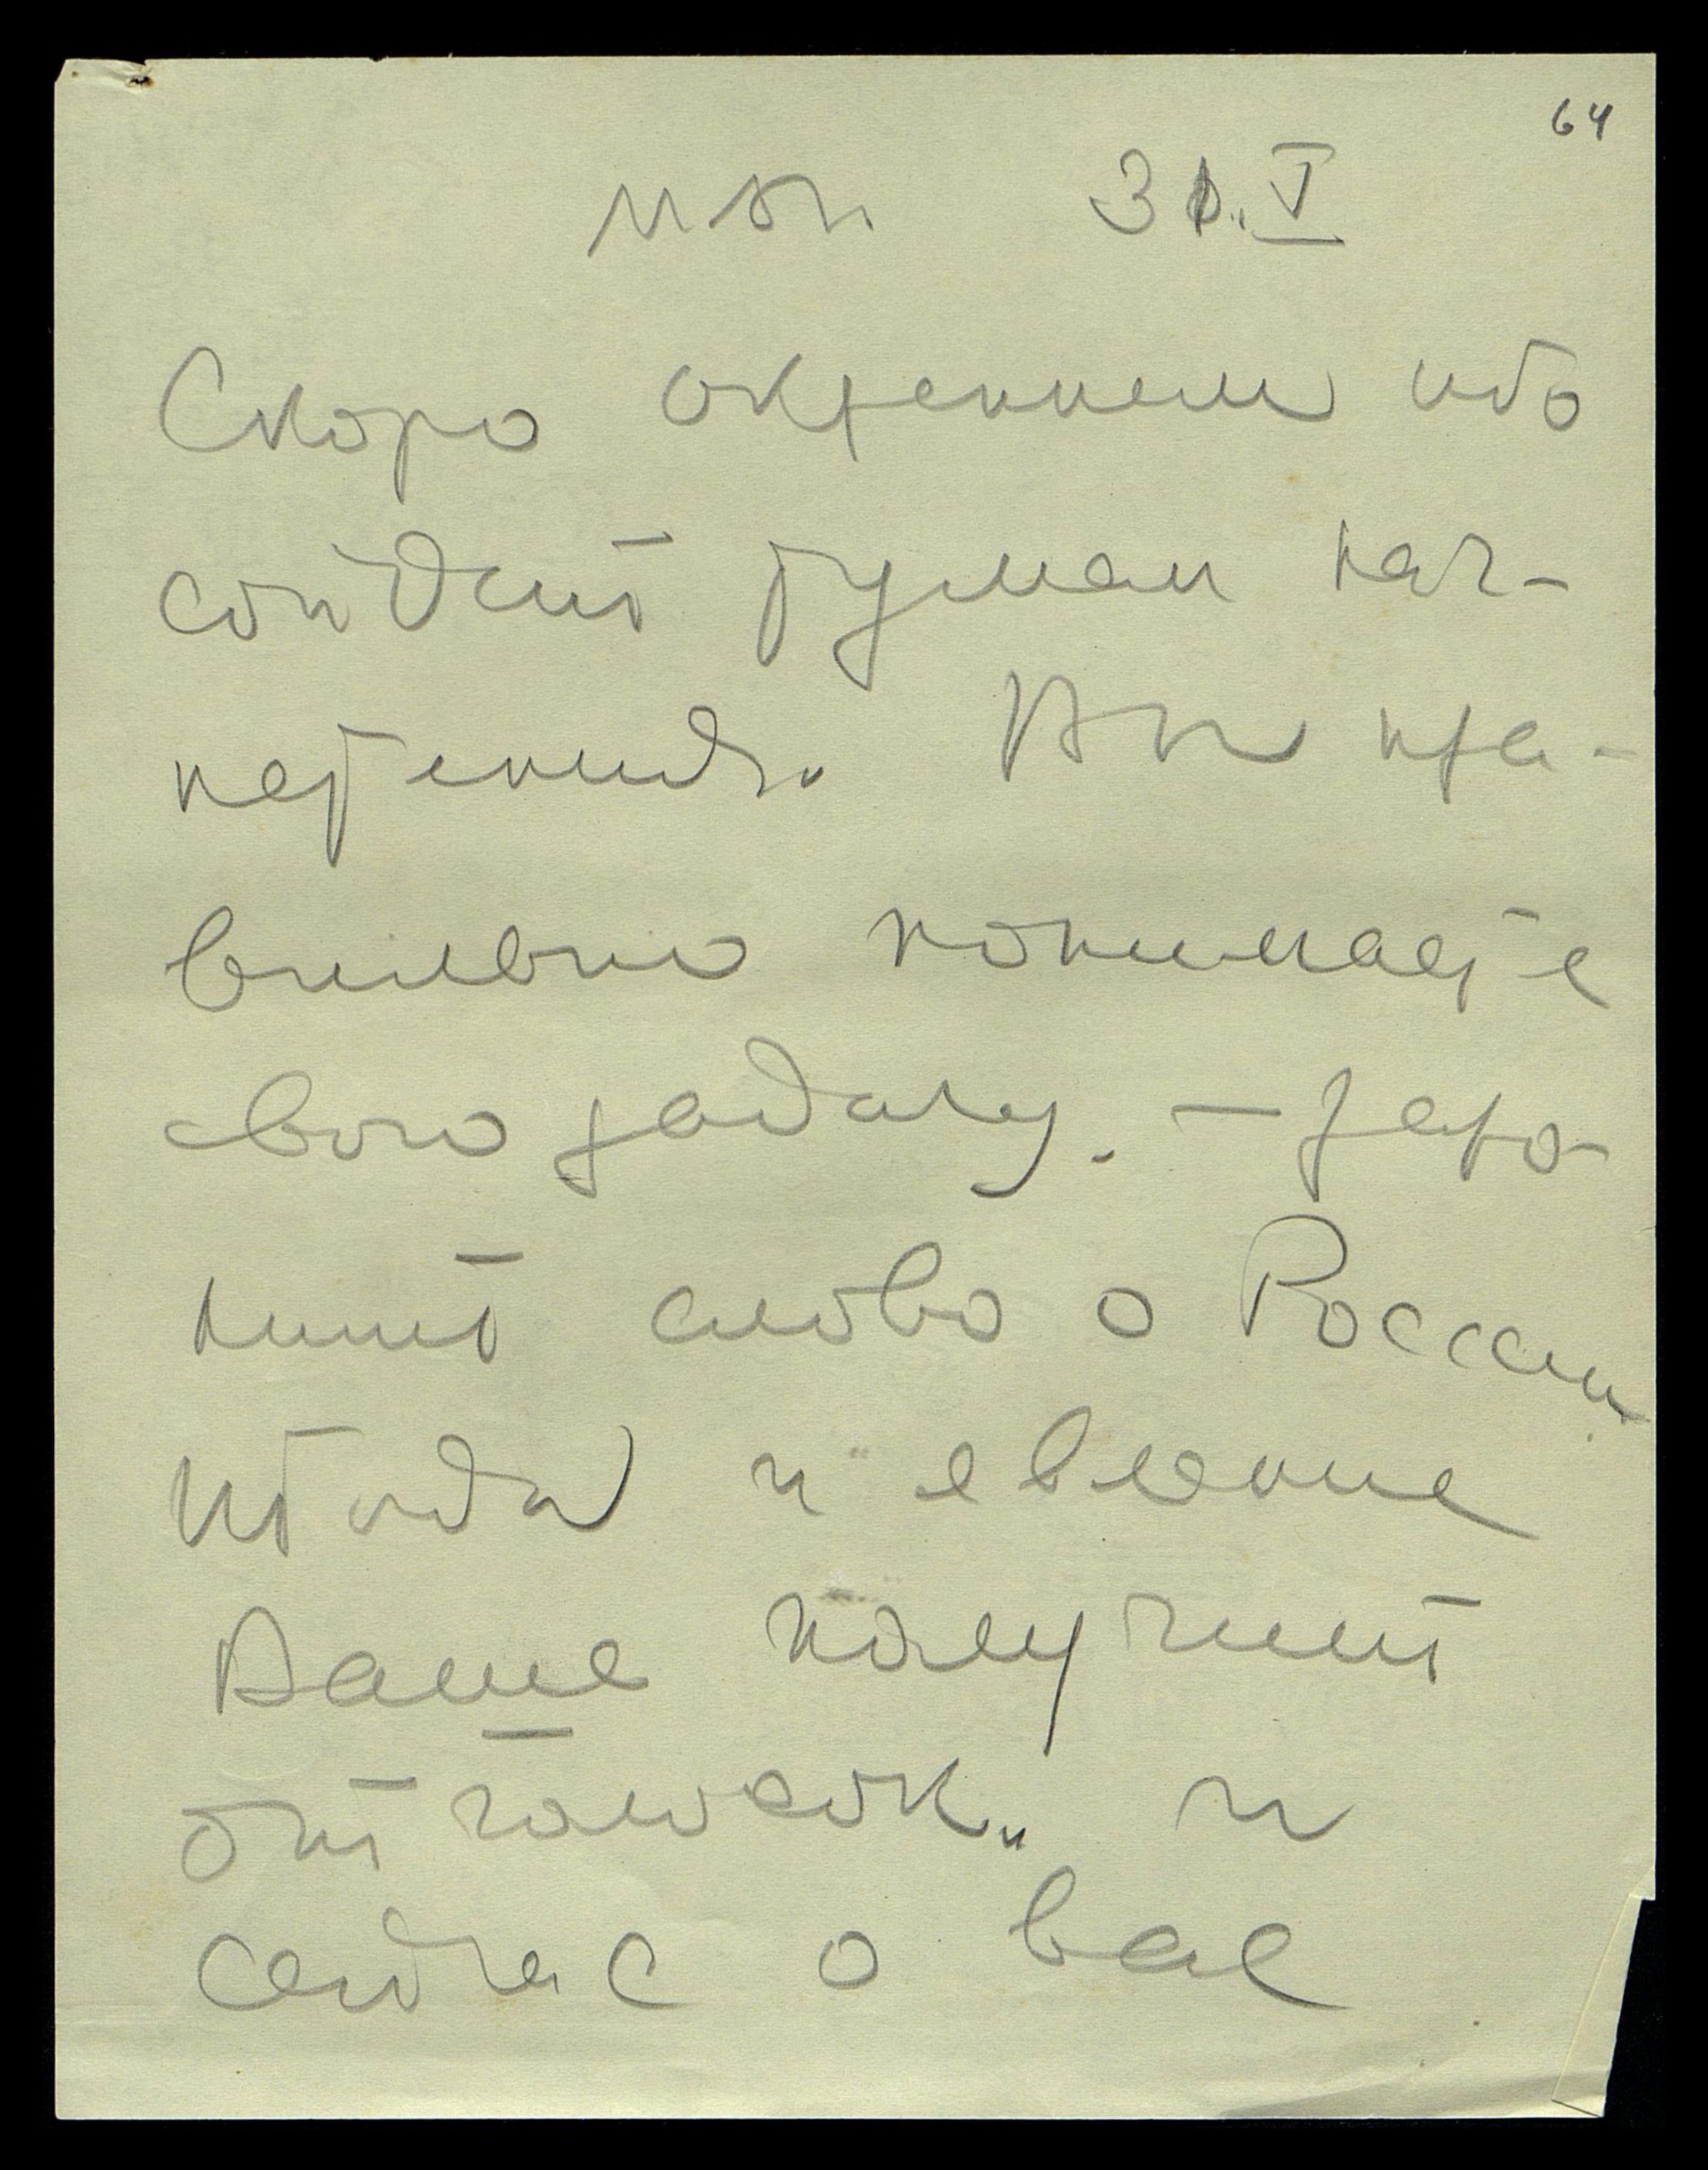 64
31.V
Скоро окрепнем ибо
сойдет туман нач-
пертения. Вы пра-
вильно понимаете
свою задачу. — заро-
нить слово о России
всюда и явление
Ваше получит
отголоск. и
сейчас о вас